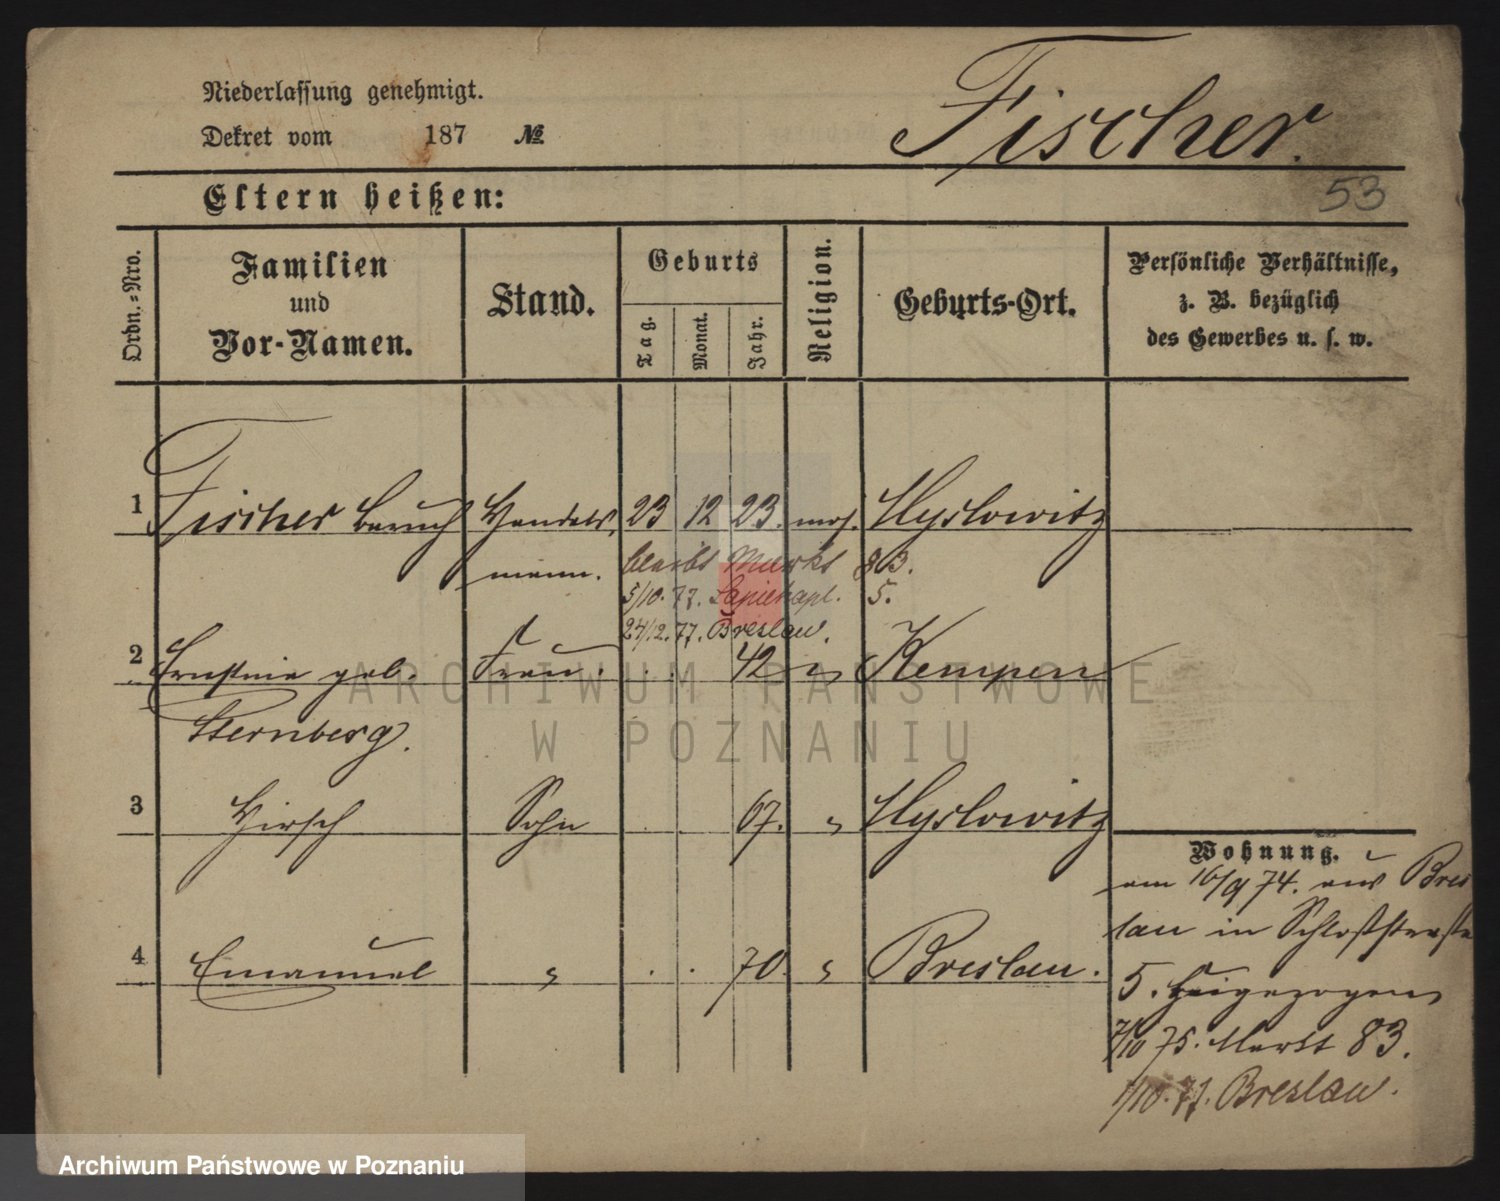 Niederlassung genehmigt.
Dekret vom 187 №
Fischer.
53
Eltern heißen:
Ordn.-Nro.
Familien
und
Vor-Namen.
Stand.
Geburts
Tag.
Monat.
Jahr.
Religion.
Geburts-Ort.
Persönliche Verhältnisse,
z. B. bezüglich
des Gewerbes u. s. w.
1 Fischer Baruch Handels 23 12 23. mos. Myslowitz
mann. bleibt Markt 83.
5/10. 77. Sapiehapl. 5.
24/12. 77. Breslau.
2 Ernstine geb. Frau. 42 " Kempen
Sternberg.
3 Hirsch Sohn . . 67. " Myslowitz
4 Emanuel " . . 70. " Breslau.
Wohnung.
am 16/9 74. aus Bres
lau in Schloßstraße
5. zugezogen
7/10 75. Markt 83.
1/10. 77. Breslau.
ARCHIWUM PAŃSTWOWE
W POZNANIU
Archiwum Państwowe w Poznaniu